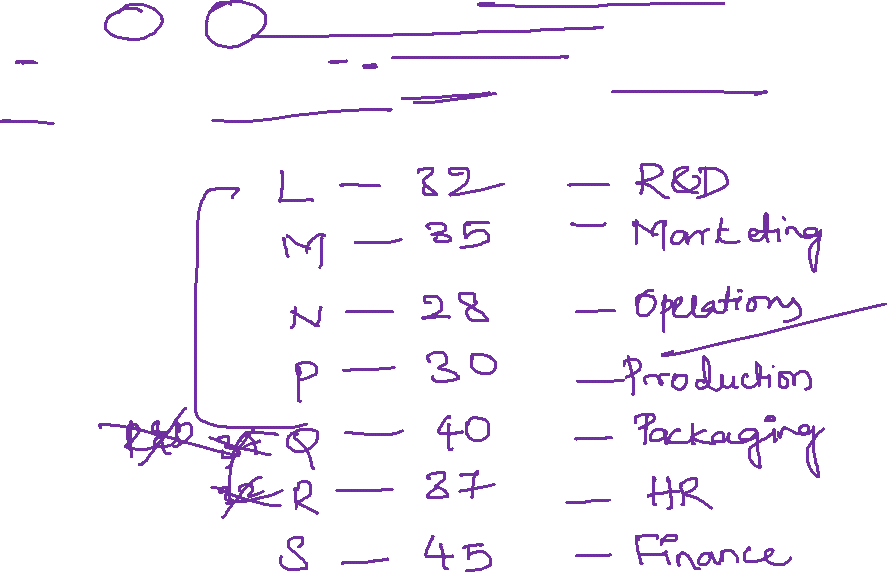 L — 32 — R&D
M — 35 — Marketing
N — 28 — Operations
P — 30 — Production
Q — 40 — Packaging
R — 37 — HR
S — 45 — Finance